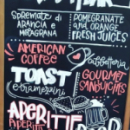 SPREMUTE di
ARANCIA e
MELAGRANA
POMEGRANATE
and ORANGE
FRESH JUICES
AMERICAN
COFFEE
TOAST
e tramezzini
GOURMET
SANDWICHES
APERITIF
APERITIVI